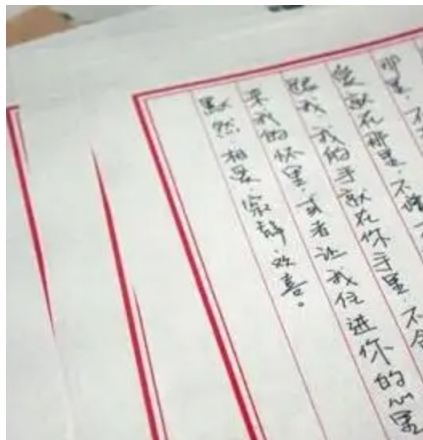 那里，不
爱就在那里，不增
跟我 我的手就在你手里 不舍
来我的怀里，或者让我住进你的心里
默然 相爱 寂静 欢喜。